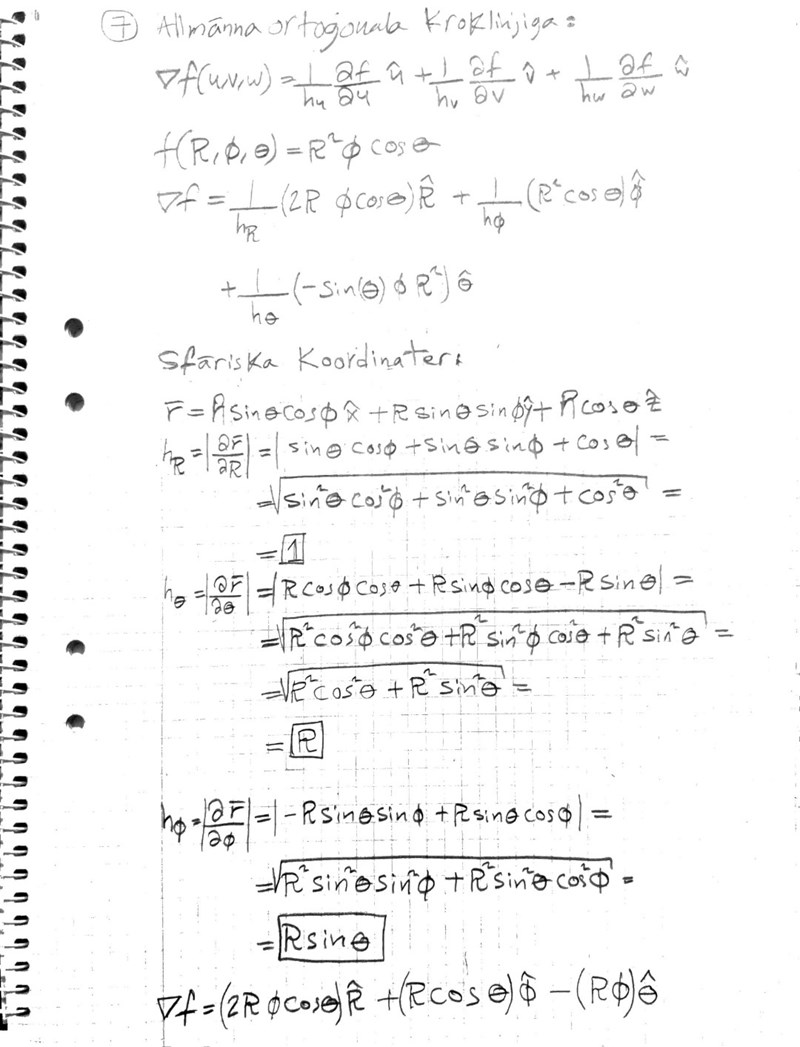 ⑦ Allmänna ortogonala Kroklinjiga:
∇f(u,v,w) = 1/h_u ∂f/∂u û + 1/h_v ∂f/∂v v̂ + 1/h_w ∂f/∂w ŵ
f(R, ϕ, θ) = R²ϕ cos θ
∇f = 1/h_R (2R ϕcosθ)R̂ + 1/h_ϕ (R²cosθ)ϕ̂
+ 1/h_θ (-sin(θ) ϕ R²) θ̂
Sfäriska Koordinater:
r̄ = R sinθcosϕ x̂ + R sinθ sinϕ ŷ + R cosθ ẑ
h_R = |∂r̄/∂R| = | sinθ cosϕ + sinθ sinϕ + cosθ| =
= √(sin²θ cos²ϕ + sin²θ sin²ϕ + cos²θ) =
= 1
h_θ = |∂r̄/∂θ| = |R cosϕ cosθ + R sinϕ cosθ - R sinθ| =
= √(R²cos²ϕ cos²θ + R² sin²ϕ cos²θ + R² sin²θ) =
= √(R²cos²θ + R² sin²θ) =
= R
h_ϕ = |∂r̄/∂ϕ| = |-R sinθ sinϕ + R sinθ cosϕ| =
= √(R² sin²θ sin²ϕ + R² sin²θ cos²ϕ) =
= R sinθ
∇f = (2R ϕ cosθ)R̂ + (R cos θ)ϕ̂ - (Rϕ)θ̂